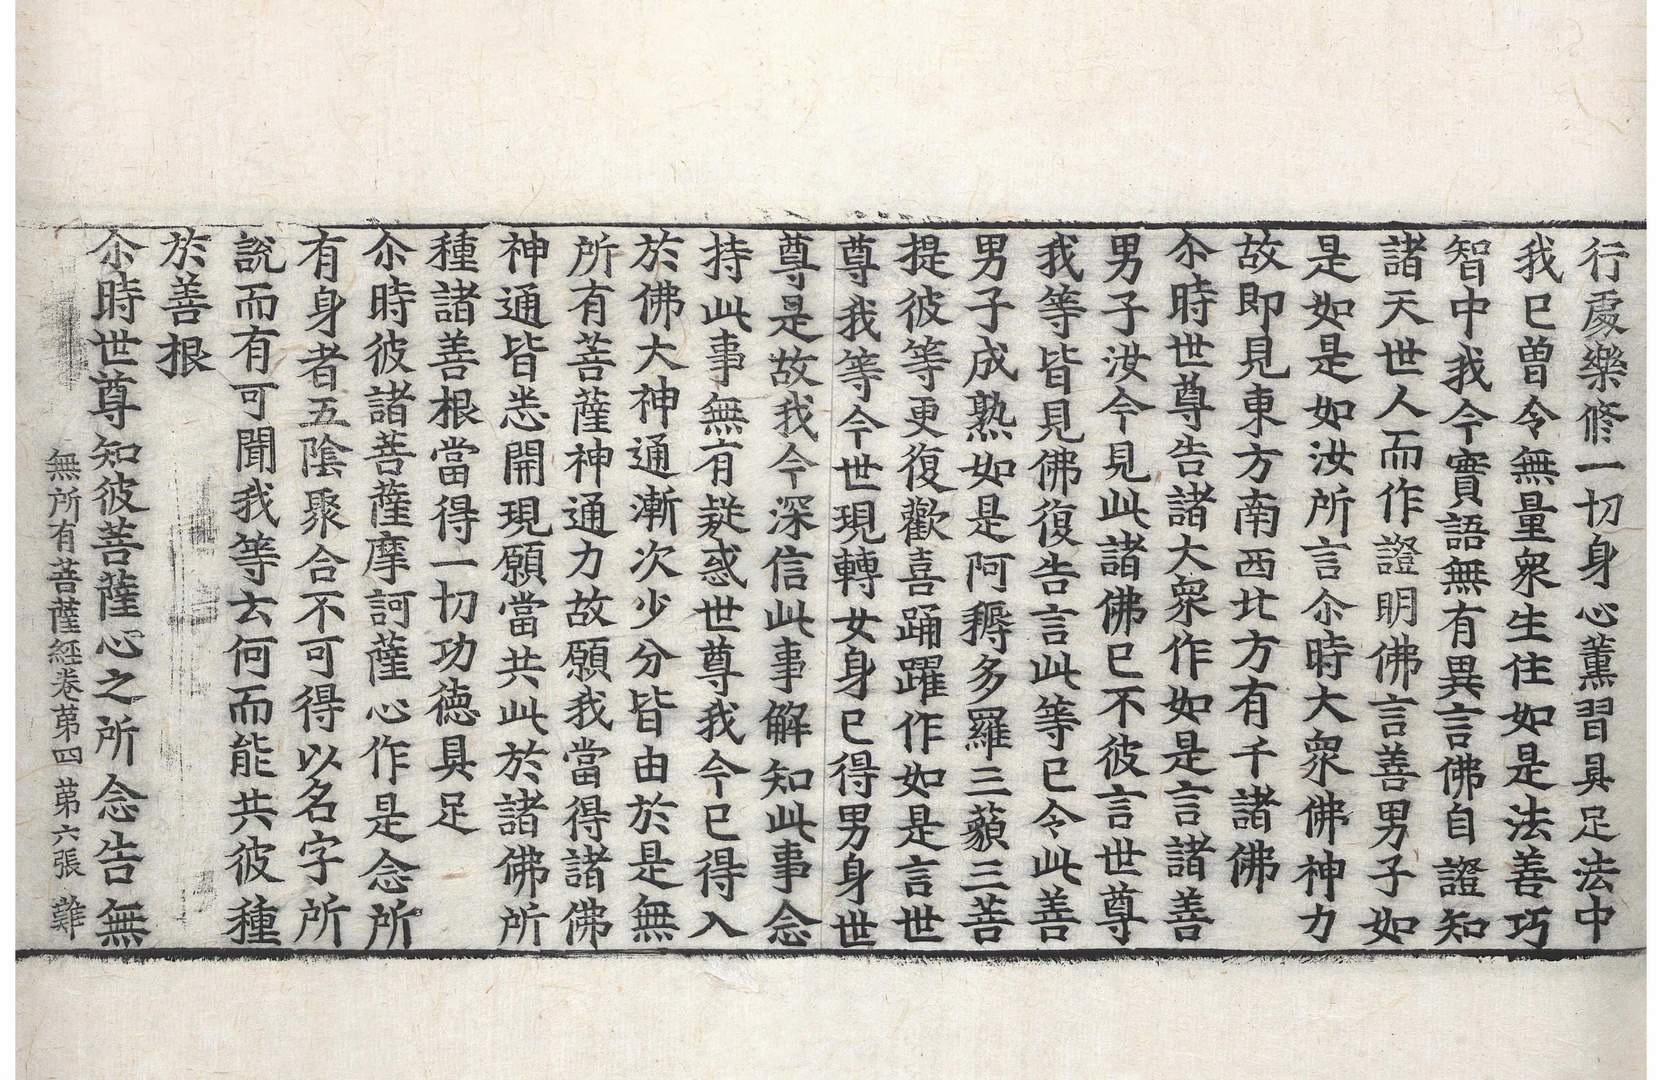 行處樂修一切身心薰習具足法中
我已曾令無量衆生住如是法善巧
智中我今實語無有異言佛自證知
諸天世人而作證明佛言善男子如
是如是如汝所言尒時大衆佛神力
故即見東方南西北方有千諸佛
尒時世尊告諸大衆作如是言諸善
男子汝今見此諸佛已不彼言世尊
我等皆見佛復告言此等已令此善
男子成熟如是阿耨多羅三藐三菩
提彼等更復歡喜踊躍作如是言世
尊我等今世現轉女身已得男身世
尊是故我今深信此事解知此事念
持此事無有疑惑世尊我今已得入
於佛大神通漸次少分皆由於是無
所有菩薩神通力故願我當得諸佛
神通皆悉開現願當共此於諸佛所
種諸善根當得一切功德具足
尒時彼諸菩薩摩訶薩心作是念所
有身者五陰聚合不可得以名字所
說而有可聞我等云何而能共彼種
於善根
尒時世尊知彼菩薩心之所念告無
無所有菩薩經卷苐四 苐六張 難